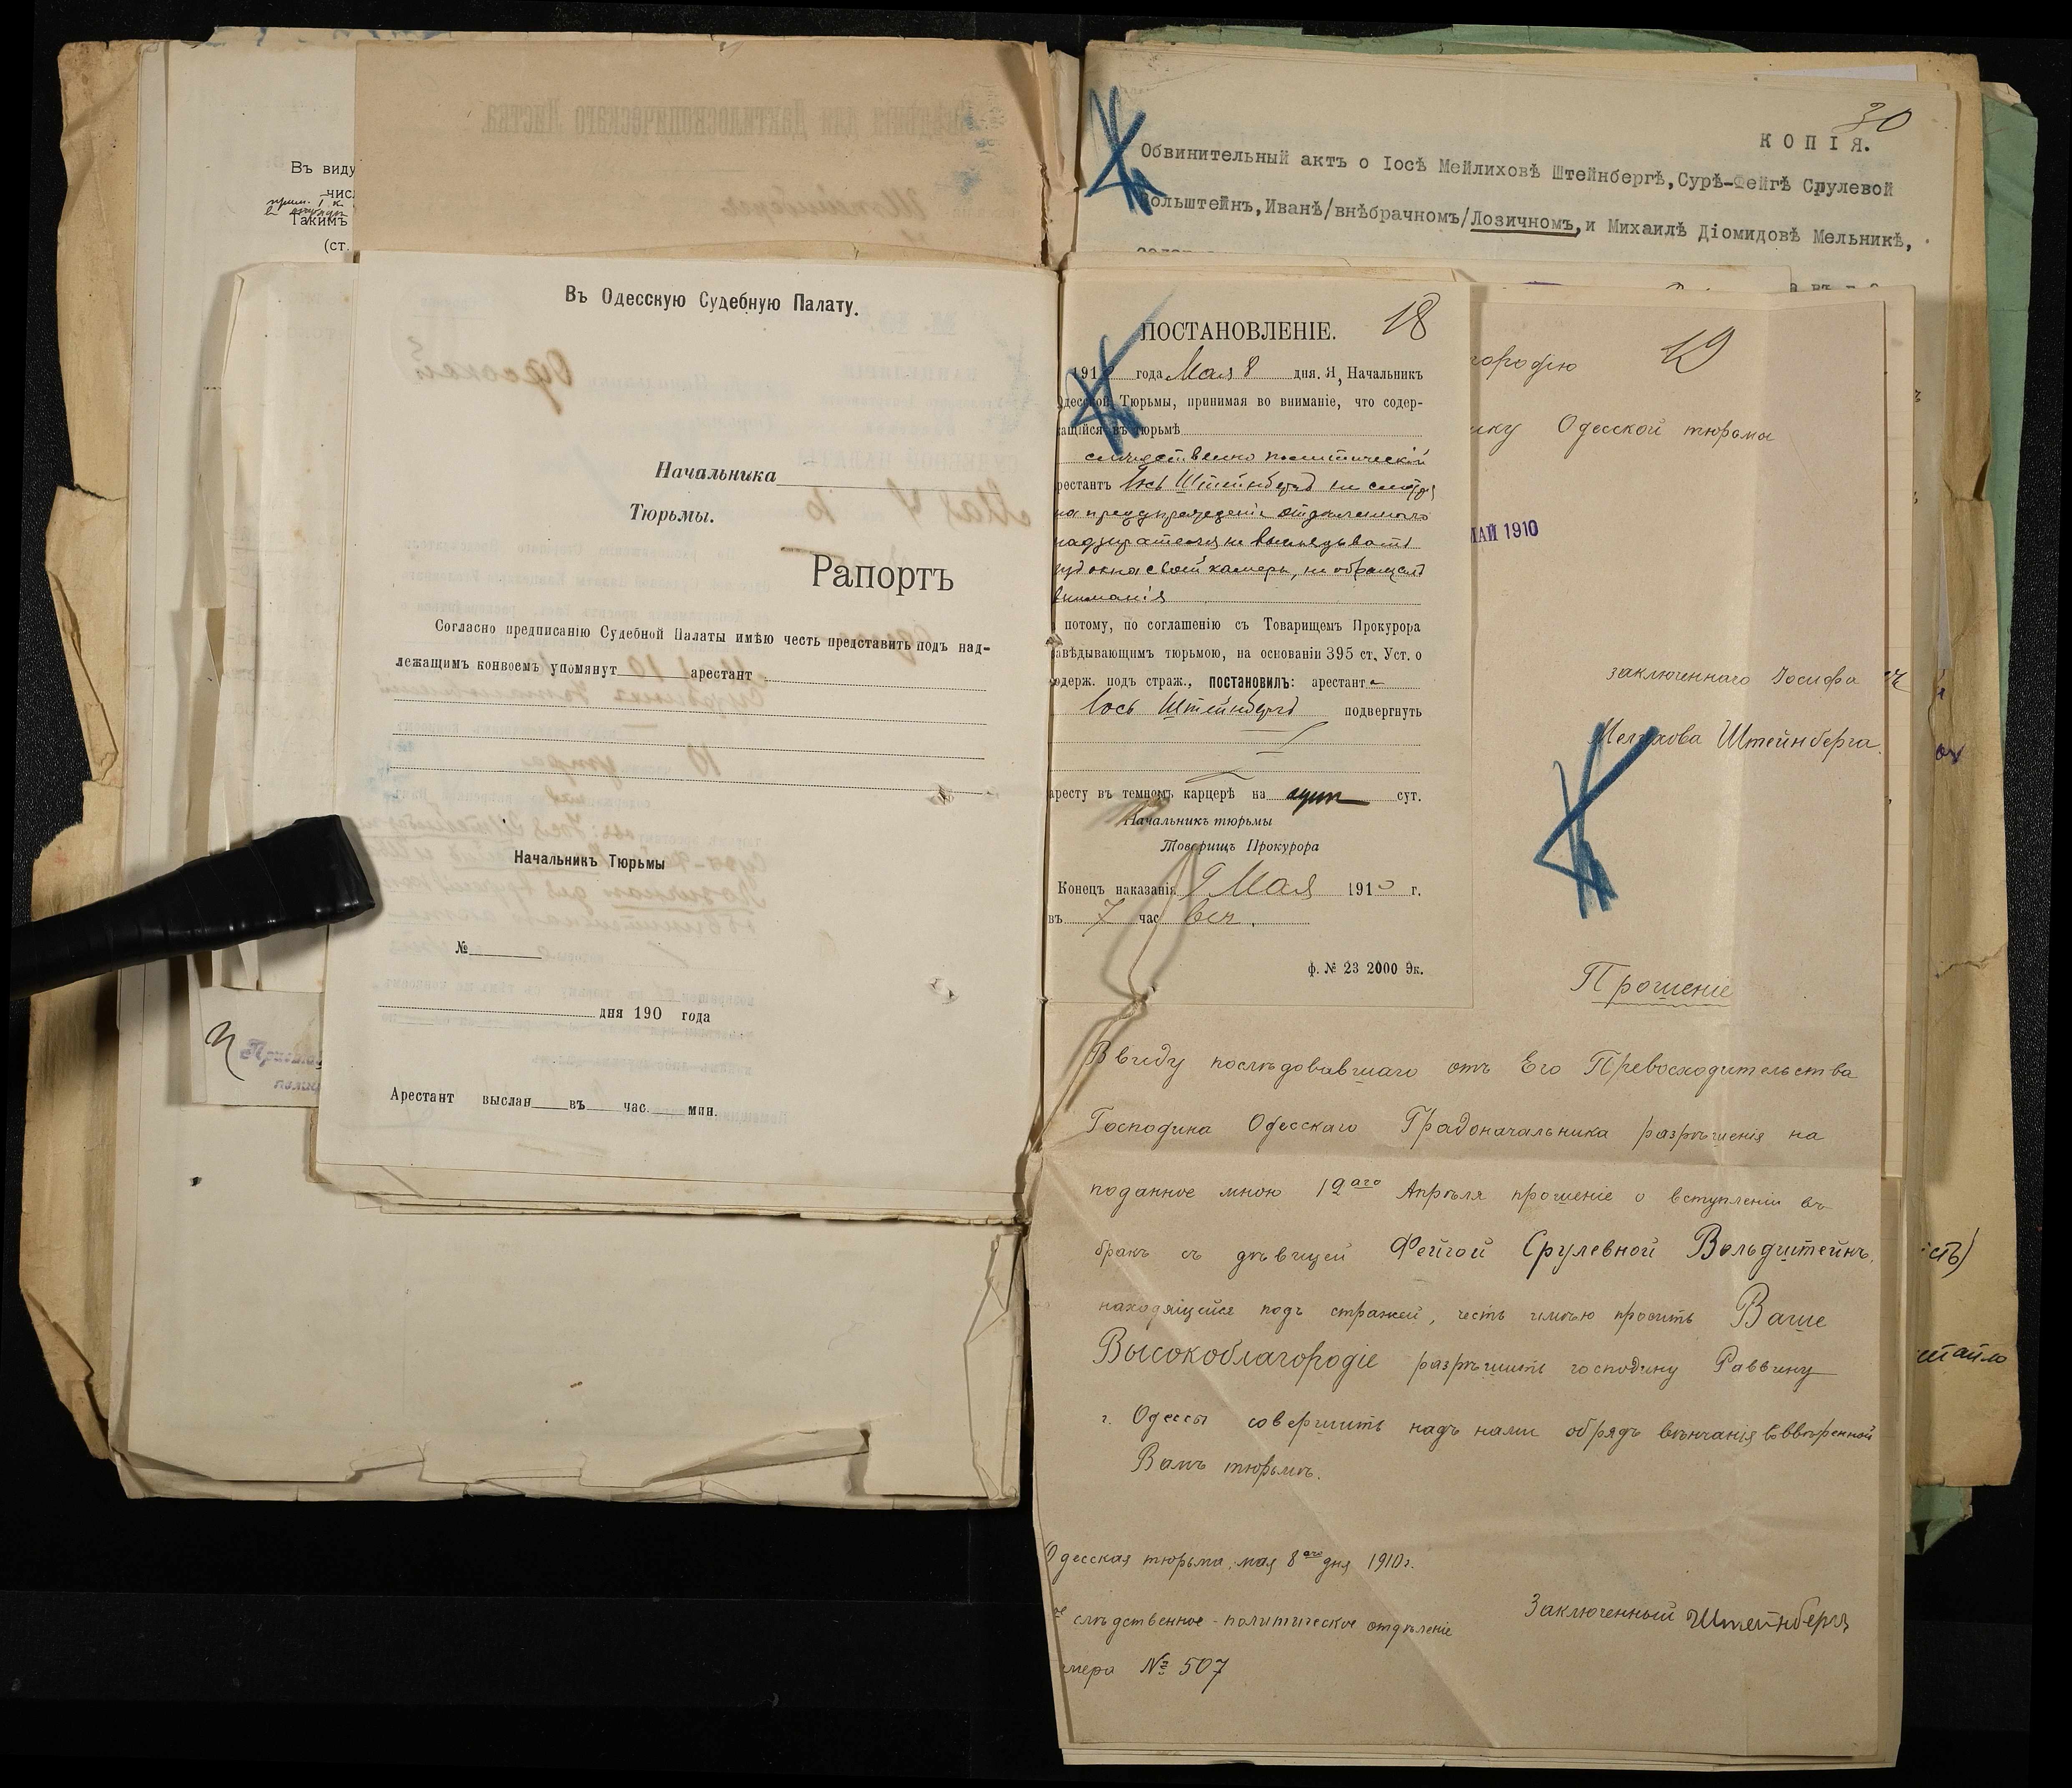 Въ виду
числ
Такимъ
(ст.
Въ Одесскую Судебную Палату.
Начальника
Тюрьмы.
Рапортъ
Согласно предписанію Судебной Палаты имѣю честь представить подъ над-
лежащимъ конвоемъ упомянут арестант
Начальникъ Тюрьмы
№
дня 190 года
Арестант выслан въ час. мин.
30
КОПІЯ.
Обвинительный актъ о Іосѣ Мейлиховѣ Штейнбергѣ, Сурѣ-Фейгѣ Срулевой
Вольштейнъ, Иванѣ/внѣбрачномъ/Лозичномъ, и Михаилѣ Діомидовѣ Мельникѣ,
18
ПОСТАНОВЛЕНІЕ.
191 года Мая 8 дня. Я, Начальникъ
Одесской Тюрьмы, принимая во вниманіе, что содер-
жащійся въ тюрьмѣ
слѣдственно политическій
рестантъ Іось Штейнбергъ не смотря
на предупрежденіе отдѣленнаго
надзирателя не выглядывать
изъ окна своей камеры, не обращалъ
вниманія
потому, по соглашенію съ Товарищемъ Прокурора
завѣдывающимъ тюрьмою, на основаніи 395 ст. Уст. о
содерж. подъ страж., постановилъ: арестанта
Іось Штейнбергъ подвергнуть
аресту въ темномъ карцерѣ на одни сут.
Начальникъ тюрьмы
Товарищъ Прокурора
Конецъ наказанія 9 Мая 1910 г.
въ 7 час веч.
ф. № 23 2000 Эк.
19
городію
ику Одесской тюрьмы
МАЙ 1910
заключеннаго Іосифа
Мелихова Штейнберга.
Прошеніе
Ввиду послѣдовавшаго отъ Его Превосходительства
Господина Одесскаго Градоначальника разрѣшенія на
поданное мною 12аго Апрѣля прошеніе о вступленіи въ
бракъ съ дѣвицей Фейгой Срулевной Вольдштейнъ,
находящейся подъ стражей, честь имѣю просить Ваше
Высокоблагородіе разрѣшить господину Раввину
г. Одессы совершить надъ нами обрядъ вѣнчанія въ ввѣренной
Вамъ тюрьмѣ.
Одесская тюрьма, мая 8аго дня 1910 г.
слѣдственное-политическое отдѣленіе
Заключенный Штейнбергъ
мера № 507